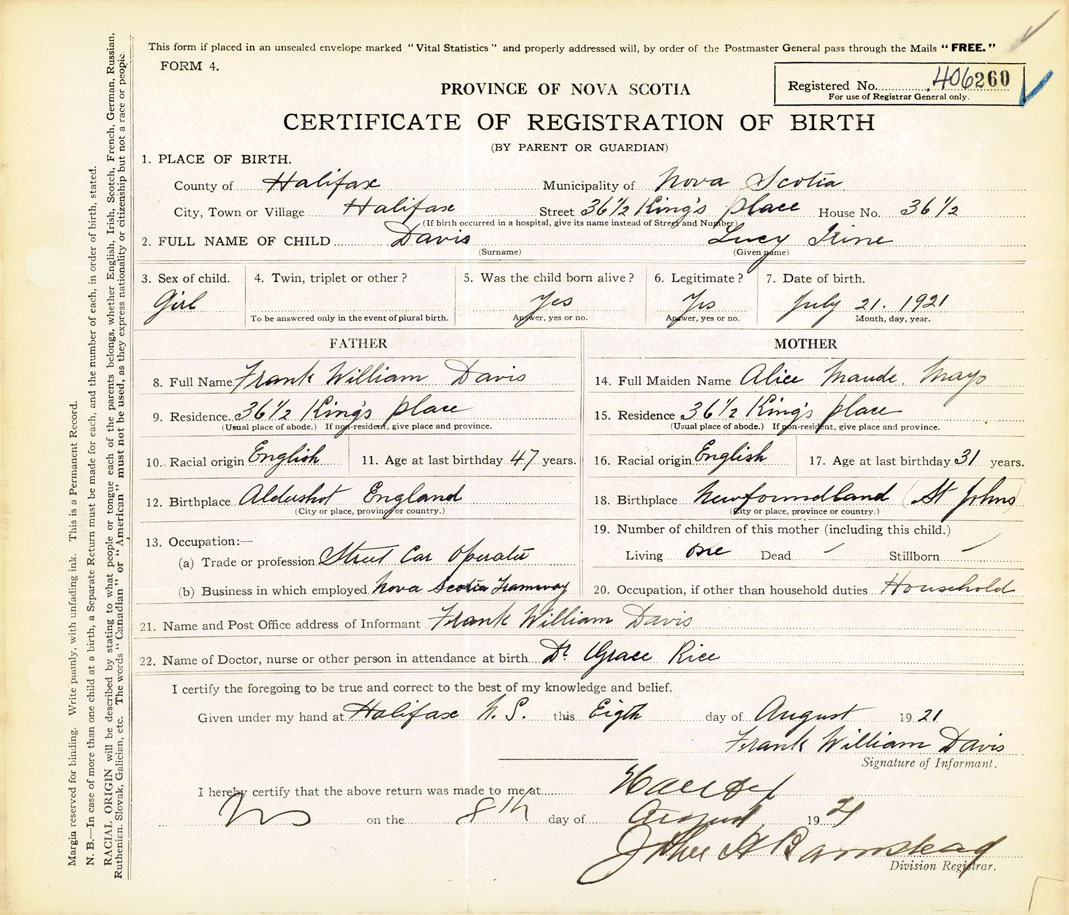 This form if placed in an unsealed envelope marked "Vital Statistics" and properly addressed will, by order of the Postmaster General pass through the Mails "FREE."
FORM 4.
Registered No. 406260
For use of Registrar General only.
PROVINCE OF NOVA SCOTIA
CERTIFICATE OF REGISTRATION OF BIRTH
(BY PARENT OR GUARDIAN)
1. PLACE OF BIRTH.
County of Halifax Municipality of Nova Scotia
City, Town or Village Halifax Street 36½ King's place House No. 36½
(If birth occurred in a hospital, give its name instead of Street and Number)
2. FULL NAME OF CHILD Davis Lucy Irine
(Surname) (Given name)
3. Sex of child. 4. Twin, triplet or other? 5. Was the child born alive? 6. Legitimate? 7. Date of birth.
Girl Yes Yes July 21. 1921
To be answered only in the event of plural birth. Answer, yes or no. Answer, yes or no. Month, day, year.
FATHER
8. Full Name Frank William Davis
9. Residence. 36½ King's place
(Usual place of abode.) If non-resident, give place and province.
10. Racial origin English 11. Age at last birthday 47 years.
12. Birthplace Aldershot England
(City or place, province or country.)
13. Occupation:—
(a) Trade or profession Street Car Operator
(b) Business in which employed Nova Scotia Tramway
MOTHER
14. Full Maiden Name Alice Maude. Mayo
15. Residence 36½ King's place
(Usual place of abode.) If non-resident, give place and province.
16. Racial origin English 17. Age at last birthday 31 years.
18. Birthplace Newfoundland (St Johns
(City or place, province or country.)
19. Number of children of this mother (including this child.)
Living one Dead – Stillborn –
20. Occupation, if other than household duties Household
21. Name and Post Office address of Informant Frank William Davis
22. Name of Doctor, nurse or other person in attendance at birth Dr Grace Rice
I certify the foregoing to be true and correct to the best of my knowledge and belief.
Given under my hand at Halifax N.S. this Eigth day of August 1921
Frank William Davis
Signature of Informant.
I hereby certify that the above return was made to me at Halifax
NS on the 8th day of August 1921
John A Barnstead
Division Registrar.
Margin reserved for binding. Write plainly, with unfading ink. This is a Permanent Record.
N. B.—In case of more than one child at a birth, a Separate Return must be made for each, and the number of each, in order of birth, stated.
RACIAL ORIGIN will be described by stating to what people or tongue each of the parents belongs, whether English, Irish, Scotch, French, German, Russian,
Ruthenian, Slovak, Galician, etc. The words "Canadian" or "American" must not be used, as they express nationality or citizenship but not a race or people.